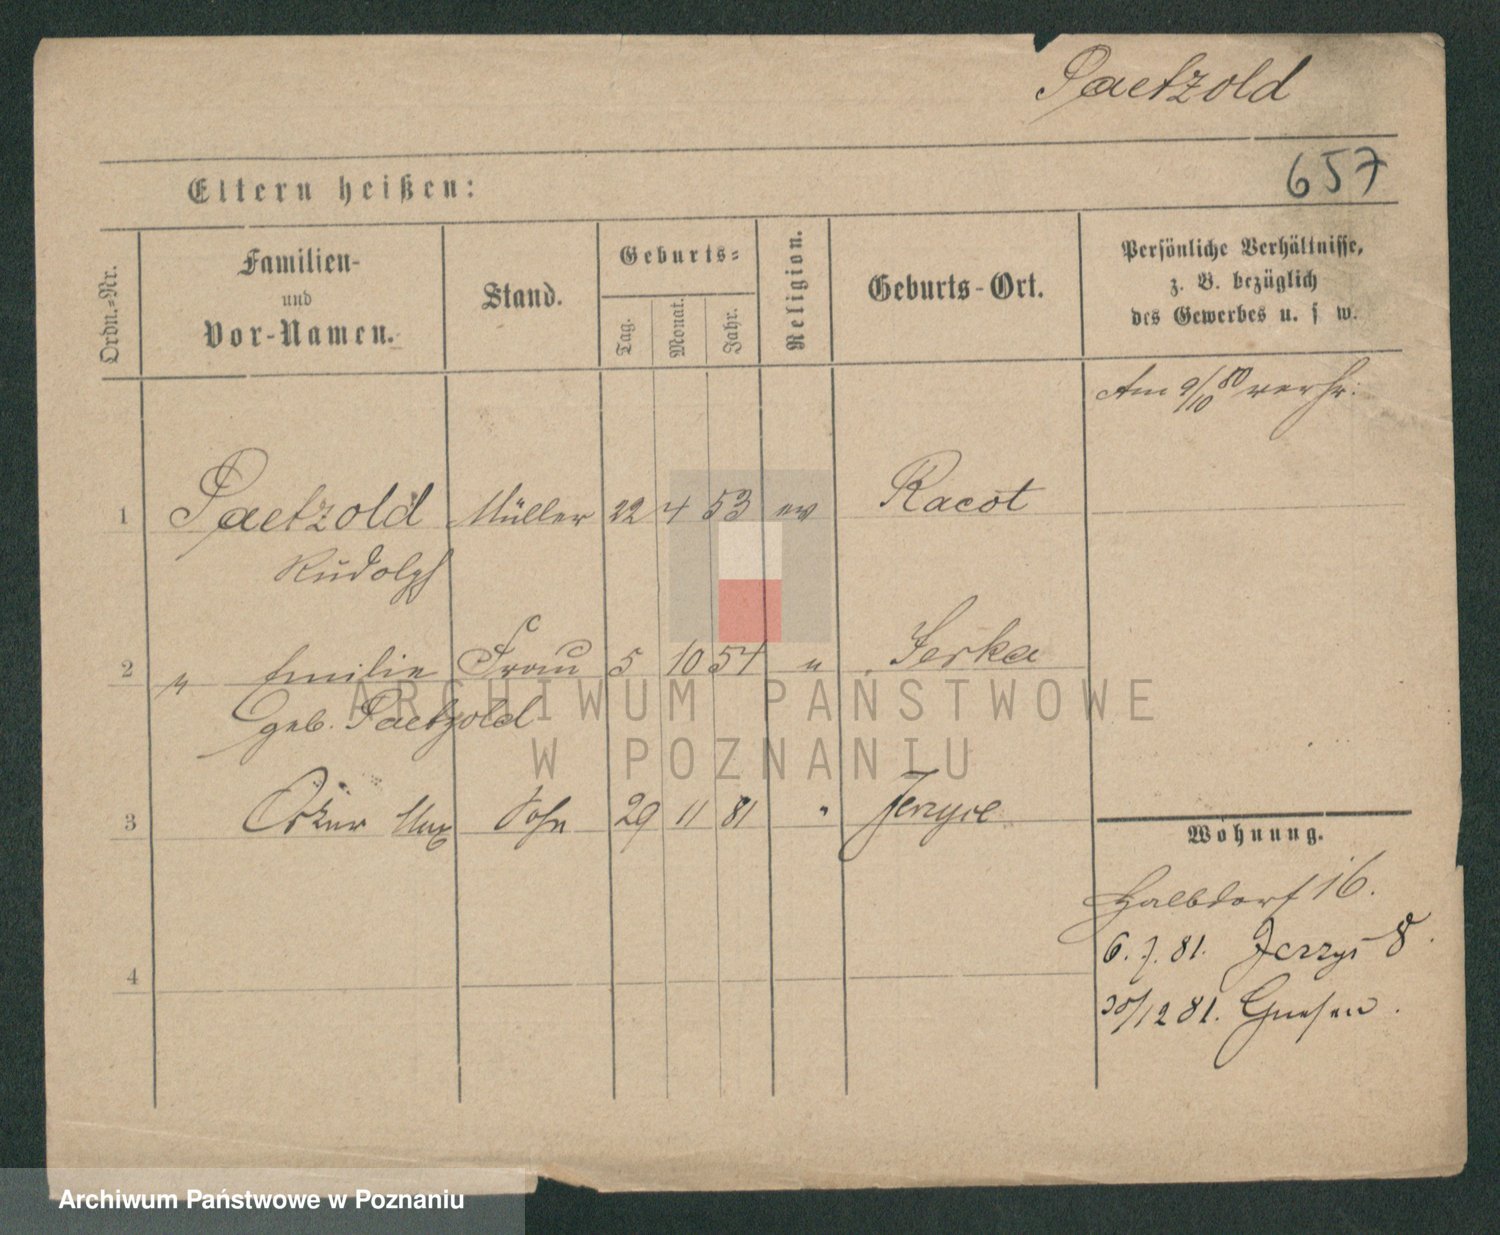 Paetzold
657
Eltern heißen:
Ordn.-Nr.
Familien-
und
Vor-Namen.
Stand.
Geburts-
Tag.
Monat.
Jahr.
Religion.
Geburts-Ort.
Persönliche Verhältnisse,
z. B. bezüglich
des Gewerbes u. s w.
Am 9/10 80 verh:
1 Paetzold Müller 22 4 53 ev Racot
Rudolph
2 " Emilie Frau 5 10 54 " Serka
geb. Paetzold
3 Oskar Max Sohn 29 11 81 " Jerzyce
Wohnung.
Halbdorf 16.
6. 7. 81. Jerzyc 8.
30/12 81. Gnesen.
4
ARCHIWUM PAŃSTWOWE
W POZNANIU
Archiwum Państwowe w Poznaniu